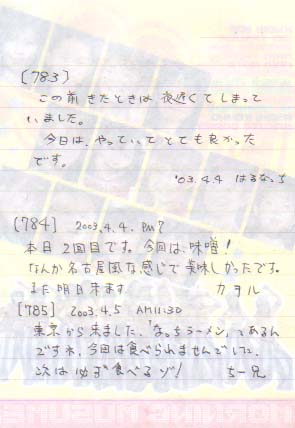 [783]
この前きたときは夜遅くてしまって
いました。
今日は、やっていてとても良かった
です。
'03.4.4 はるなっち
[784] 2003.4.4. PM7
本日2回目です。今回は、味噌！
なんか名古屋風な感じで美味しかったです。
また明日来ます カヲル
[785] 2003.4.5 AM11:30
東京から来ました、「なっちラーメン」てあるん
ですネ、今回は食べられませんでした。
次は必ず食べるゾ！ ちー兄
MORNING MUSUME